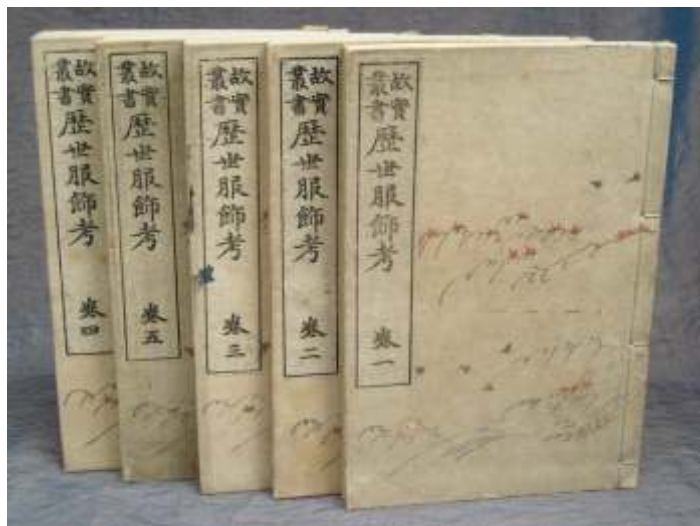 故實
叢書
歷世服飾考
卷四
故實
叢書
歷世服飾考
卷五
故實
叢書
歷世服飾考
卷三
故實
叢書
歷世服飾考
卷二
故實
叢書
歷世服飾考
卷一